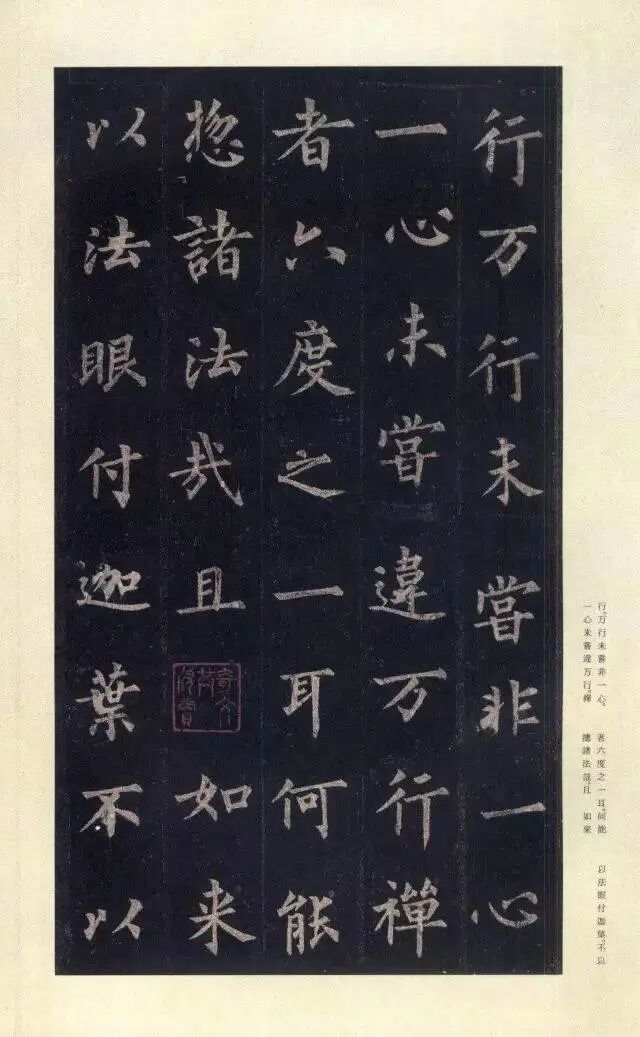 行万行未嘗非一心
一心未嘗違万行禪
者六度之一耳何能
揔諸法哉且如来
以法眼付迦葉不以
行。万行未嘗非一心。
一心未嘗違万行。禪
者六度之一耳。何能
揔諸法哉。且 如來
以法眼付迦葉。不以